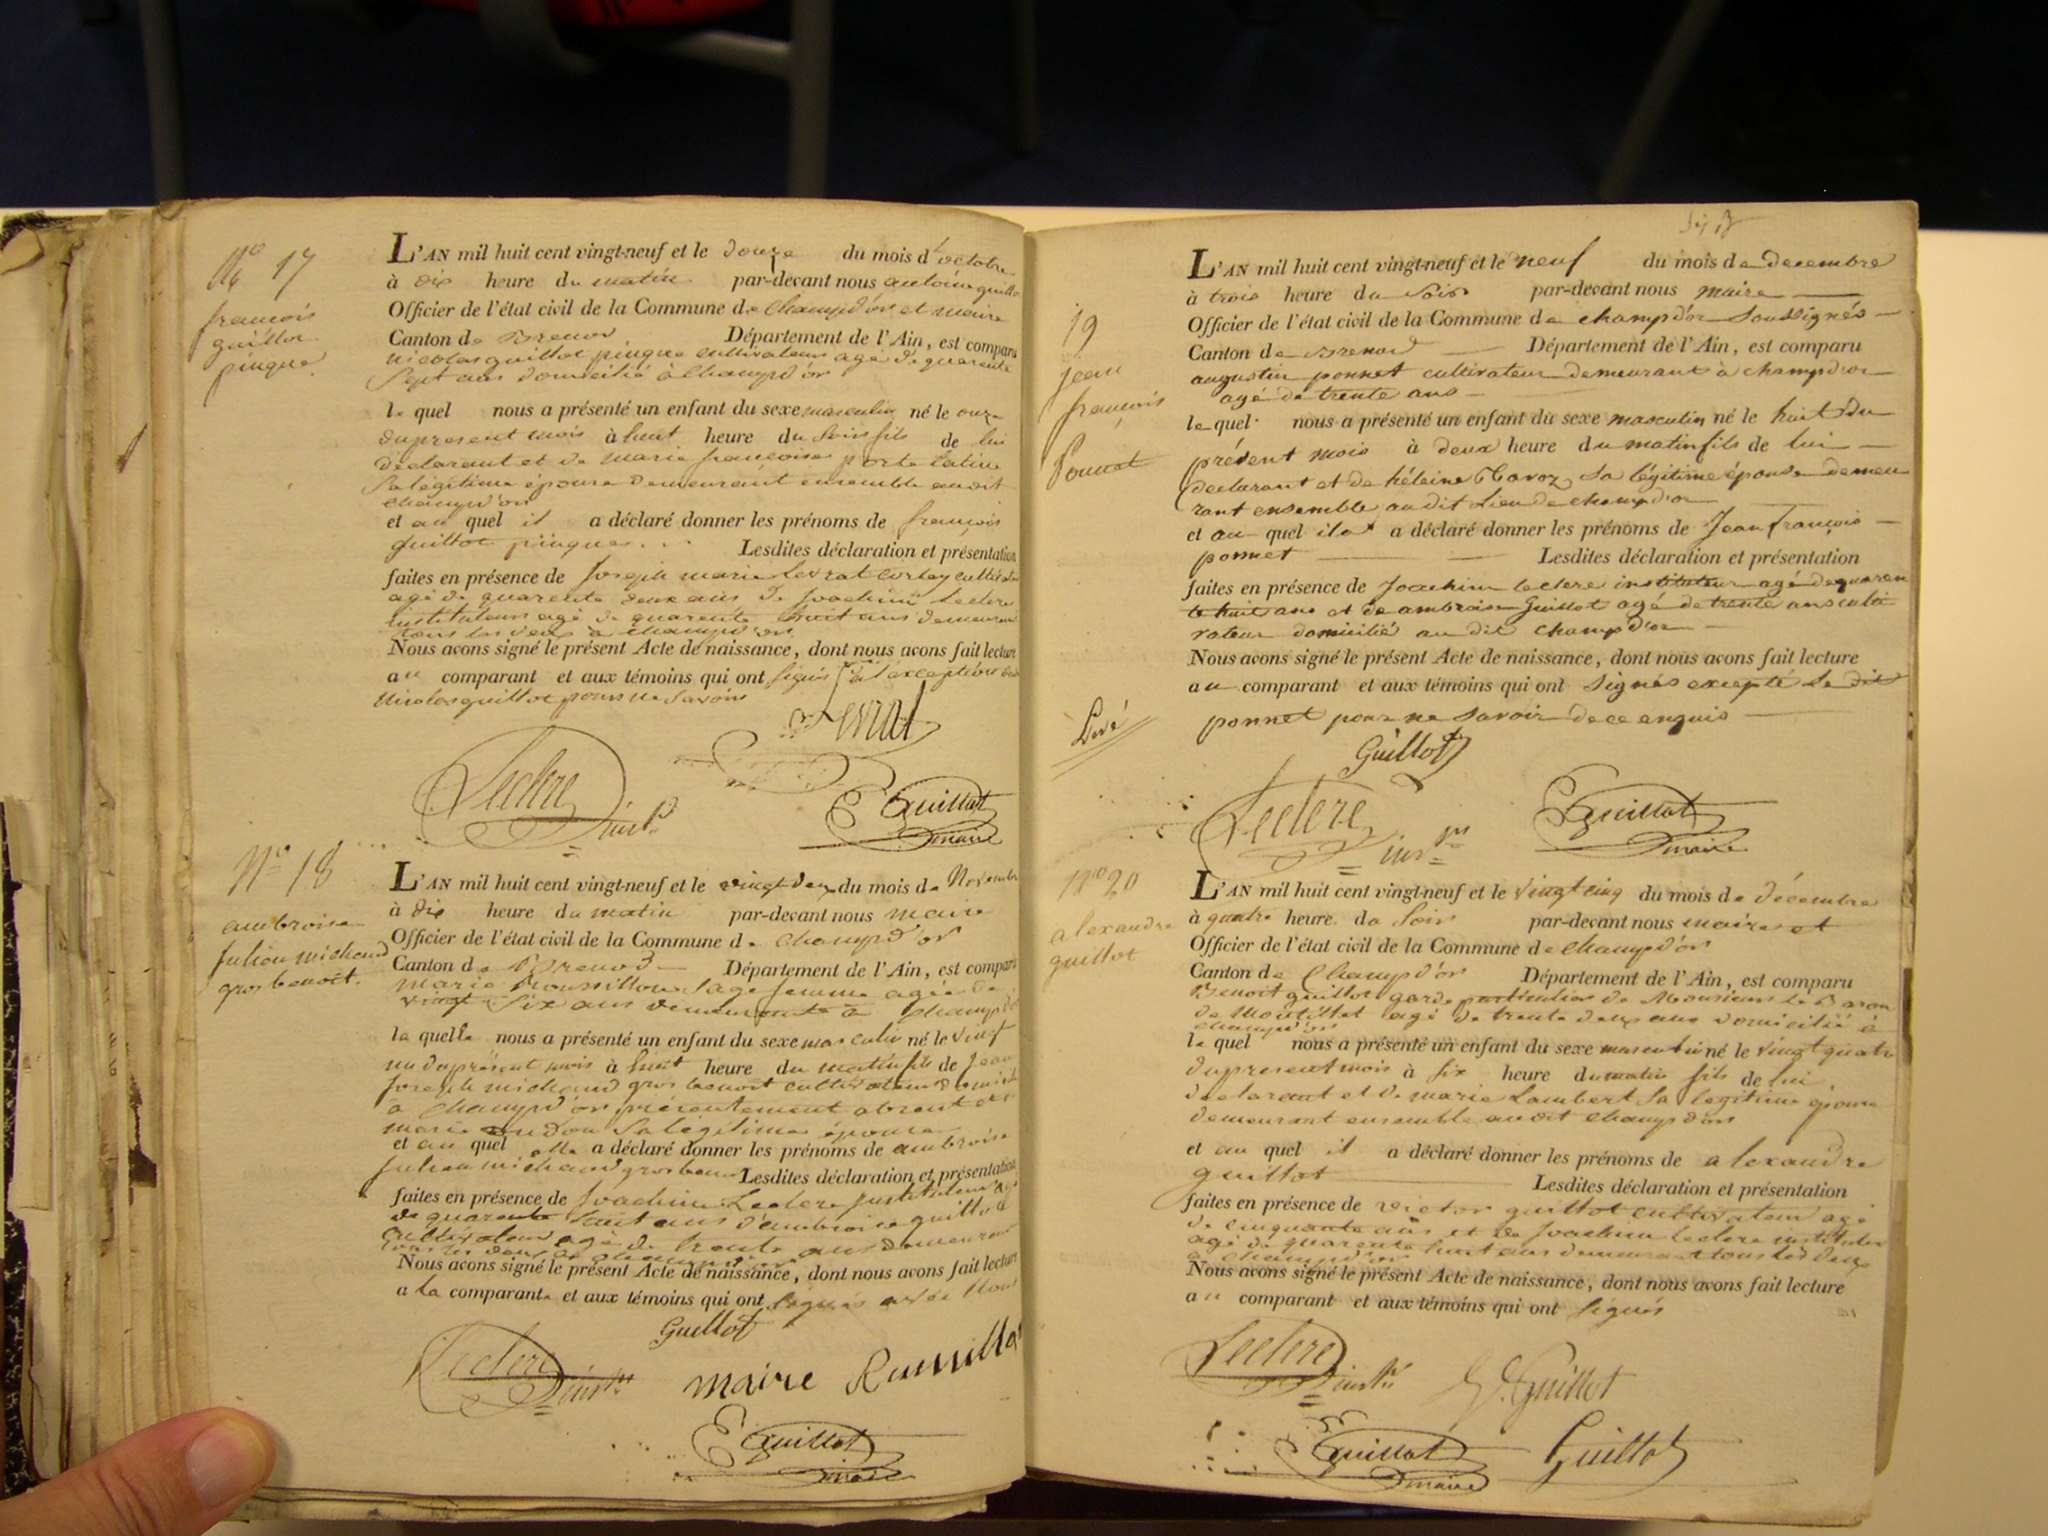 No 17
françois
guillot
pinque.
L'AN mil huit cent vingt-neuf et le douze du mois d'octobre
à dix heure du matin par-devant nous antoine guillot
Officier de l'état civil de la Commune de Champd'or et maire
Canton de Brenod Département de l'Ain, est comparu
nicolas guillot pinque cultivateur agé de quarente
Sept ans domicilié à Champd'or
le quel nous a présenté un enfant du sexe masculin né le onze
du present mois à huit heure du Soir fils de lui
déclarant et de marie françoise porte latine
Sa légitime épouse demeurant ensemble au dit
Champd'or
et au quel il a déclaré donner les prénoms de françois
guillot pinque . . . Lesdites déclaration et présentation
faites en présence de Joseph marie Levrat cultivateur
agé de quarente deux ans de Joachim Leclere
instituteur agé de quarente huit ans demeurant
tous les deux à Champd'or
Nous avons signé le présent Acte de naissance, dont nous avons fait lecture
au comparant et aux témoins qui ont signés à l'exception de
nicolas guillot pour ne Savoir
Levrat
Leclere instr
Guillot
maire
No 18
ambroise
Julien michaud
gros benoit.
L'AN mil huit cent vingt-neuf et le vingt deux du mois de Novembre
à dix heure du matin par-devant nous maire
Officier de l'état civil de la Commune de Champd'or
Canton de Brenod Département de l'Ain, est comparu
marie Roussillon Sage femme agée de
vingt Six ans demeurante à Champd'or
la quelle nous a présenté un enfant du sexe masculin né le vingt
un du présent mois à huit heure du matin fils de Jean
Joseph michaud gros benoit cultivateur domicilié
à Champd'or présentement absent et de
marie Sa légitime épouse
et au quel elle a déclaré donner les prénoms de ambroise
Julien michaud gros benoit Lesdites déclaration et présentation
faites en présence de Joachim Leclere Instituteur agé
de quarente huit ans d'ambroise guillot
cultivateur agé de trente ans demeurant
tous les deux à champd'or
Nous avons signé le présent Acte de naissance, dont nous avons fait lecture
a la comparante et aux témoins qui ont signés avec Nous
Guillot
Leclere instr
maire Roussillon
Guillot
maire
19
jean
françois
Ponnet
Levé
L'AN mil huit cent vingt-neuf et le neuf du mois de decembre
à trois heure du Soir par-devant nous maire
Officier de l'état civil de la Commune de champd'or Soussignés
Canton de Brenod Département de l'Ain, est comparu
augustin ponnet cultivateur demeurant à champd'or
agé de trente ans
le quel nous a présenté un enfant du sexe masculin né le huit du
présent mois à deux heure du matin fils de lui
declarant et de héleine Sa légitime épouse demeu
rant ensemble au dit Lieu de champd'or
et au quel il a déclaré donner les prénoms de Jean françois
ponnet Lesdites déclaration et présentation
faites en présence de Joachim leclere instituteur agé de quaren
te huit ans et de ambroise Guillot agé de trente ans culti
vateur domicilié au dit champd'or
Nous avons signé le présent Acte de naissance, dont nous avons fait lecture
au comparant et aux témoins qui ont Signés excepté le dit
ponnet pour ne Savoir de ce enquis
Guillot
Leclere instr
Guillot
maire
No 20
alexandre
guillot
L'AN mil huit cent vingt-neuf et le vingt cinq du mois de décembre
à quatre heure du Soir par-devant nous maire et
Officier de l'état civil de la Commune de Champd'or
Canton de Champd'or Département de l'Ain, est comparu
Benoit guillot garde particulier de Monsieur le Baron
de Montillet agé de trente deux ans domicilié à
Champd'or
le quel nous a présenté un enfant du sexe masculin né le vingt quatre
du present mois à Six heure du matin fils de lui
déclarant et de marie Lambert Sa legitime épouse
demeurant ensemble au dit Champd'or
et au quel il a déclaré donner les prénoms de alexandre
guillot Lesdites déclaration et présentation
faites en présence de victor guillot cultivateur agé
de cinquante ans et de Joachim leclere instituteur
agé de quarente huit ans demeurant tous les deux
à Champd'or
Nous avons signé le présent Acte de naissance, dont nous avons fait lecture
au comparant et aux témoins qui ont Signés
Leclere instr
V. Guillot
Guillot
maire
Guillot